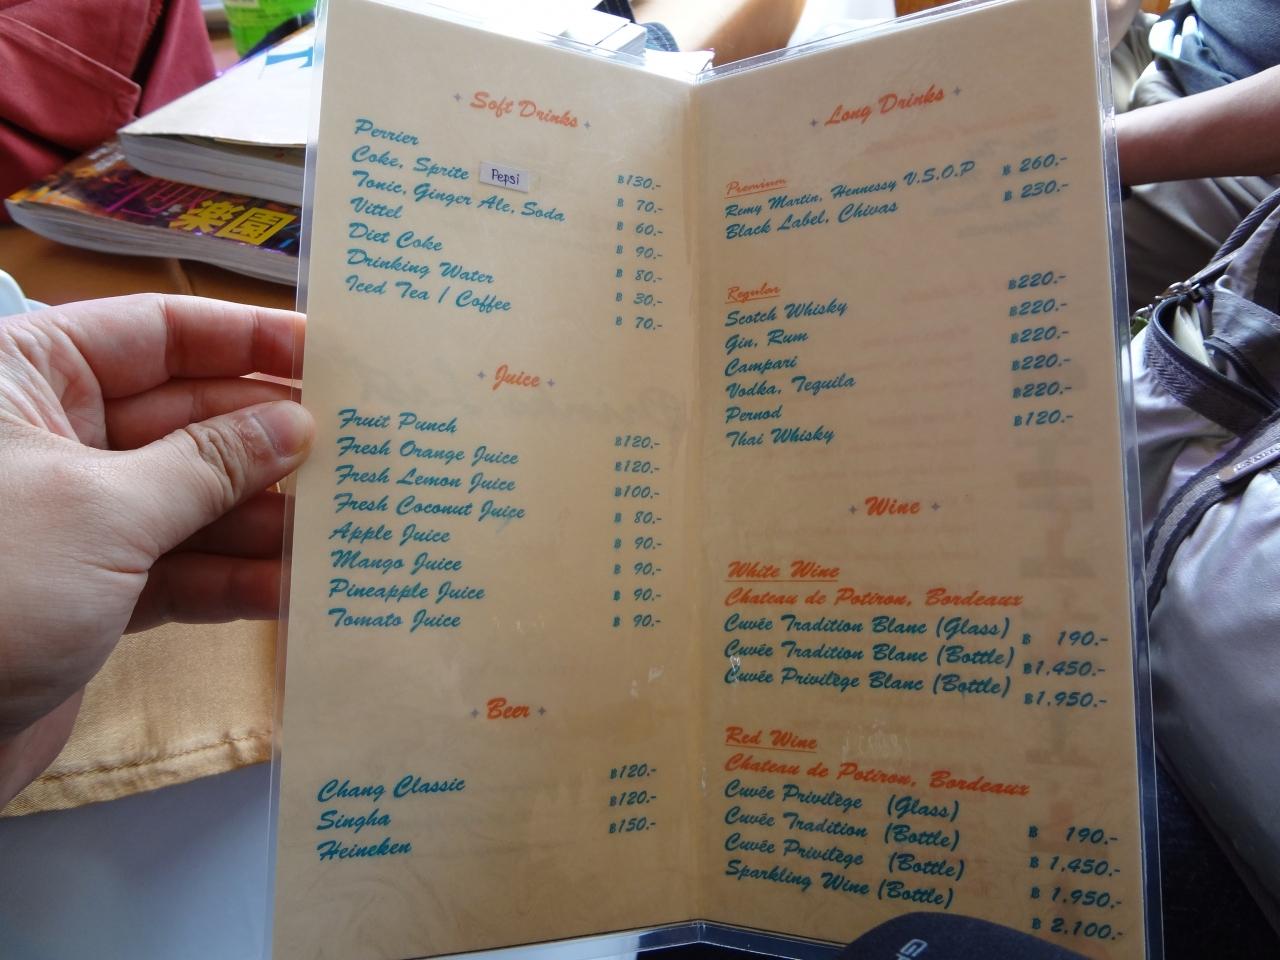 Soft Drinks
Perrier ฿130.-
Coke, Sprite Pepsi ฿ 70.-
Tonic, Ginger Ale, Soda ฿ 60.-
Vittel ฿ 90.-
Diet Coke ฿ 80.-
Drinking Water ฿ 30.-
Iced Tea / Coffee ฿ 70.-
Juice
Fruit Punch ฿120.-
Fresh Orange Juice ฿120.-
Fresh Lemon Juice ฿100.-
Fresh Coconut Juice ฿ 80.-
Apple Juice ฿ 90.-
Mango Juice ฿ 90.-
Pineapple Juice ฿ 90.-
Tomato Juice ฿ 90.-
Beer
Chang Classic ฿120.-
Singha ฿120.-
Heineken ฿150.-
Long Drinks
Premium
Remy Martin, Hennessy V.S.O.P ฿ 260.-
Black Label, Chivas ฿ 230.-
Regular
Scotch Whisky ฿220.-
Gin, Rum ฿220.-
Campari ฿220.-
Vodka, Tequila ฿220.-
Pernod ฿220.-
Thai Whisky ฿120.-
Wine
White Wine
Chateau de Potiron, Bordeaux
Cuvée Tradition Blanc (Glass) ฿ 190.-
Cuvée Tradition Blanc (Bottle) ฿1.450.-
Cuvée Privilège Blanc (Bottle) ฿1.950.-
Red Wine
Chateau de Potiron, Bordeaux
Cuvée Privilège (Glass) ฿ 190.-
Cuvée Tradition (Bottle) ฿ 1.450.-
Cuvée Privilège (Bottle) ฿ 1.950.-
Sparkling Wine (Bottle) ฿ 2.100.-
楽園